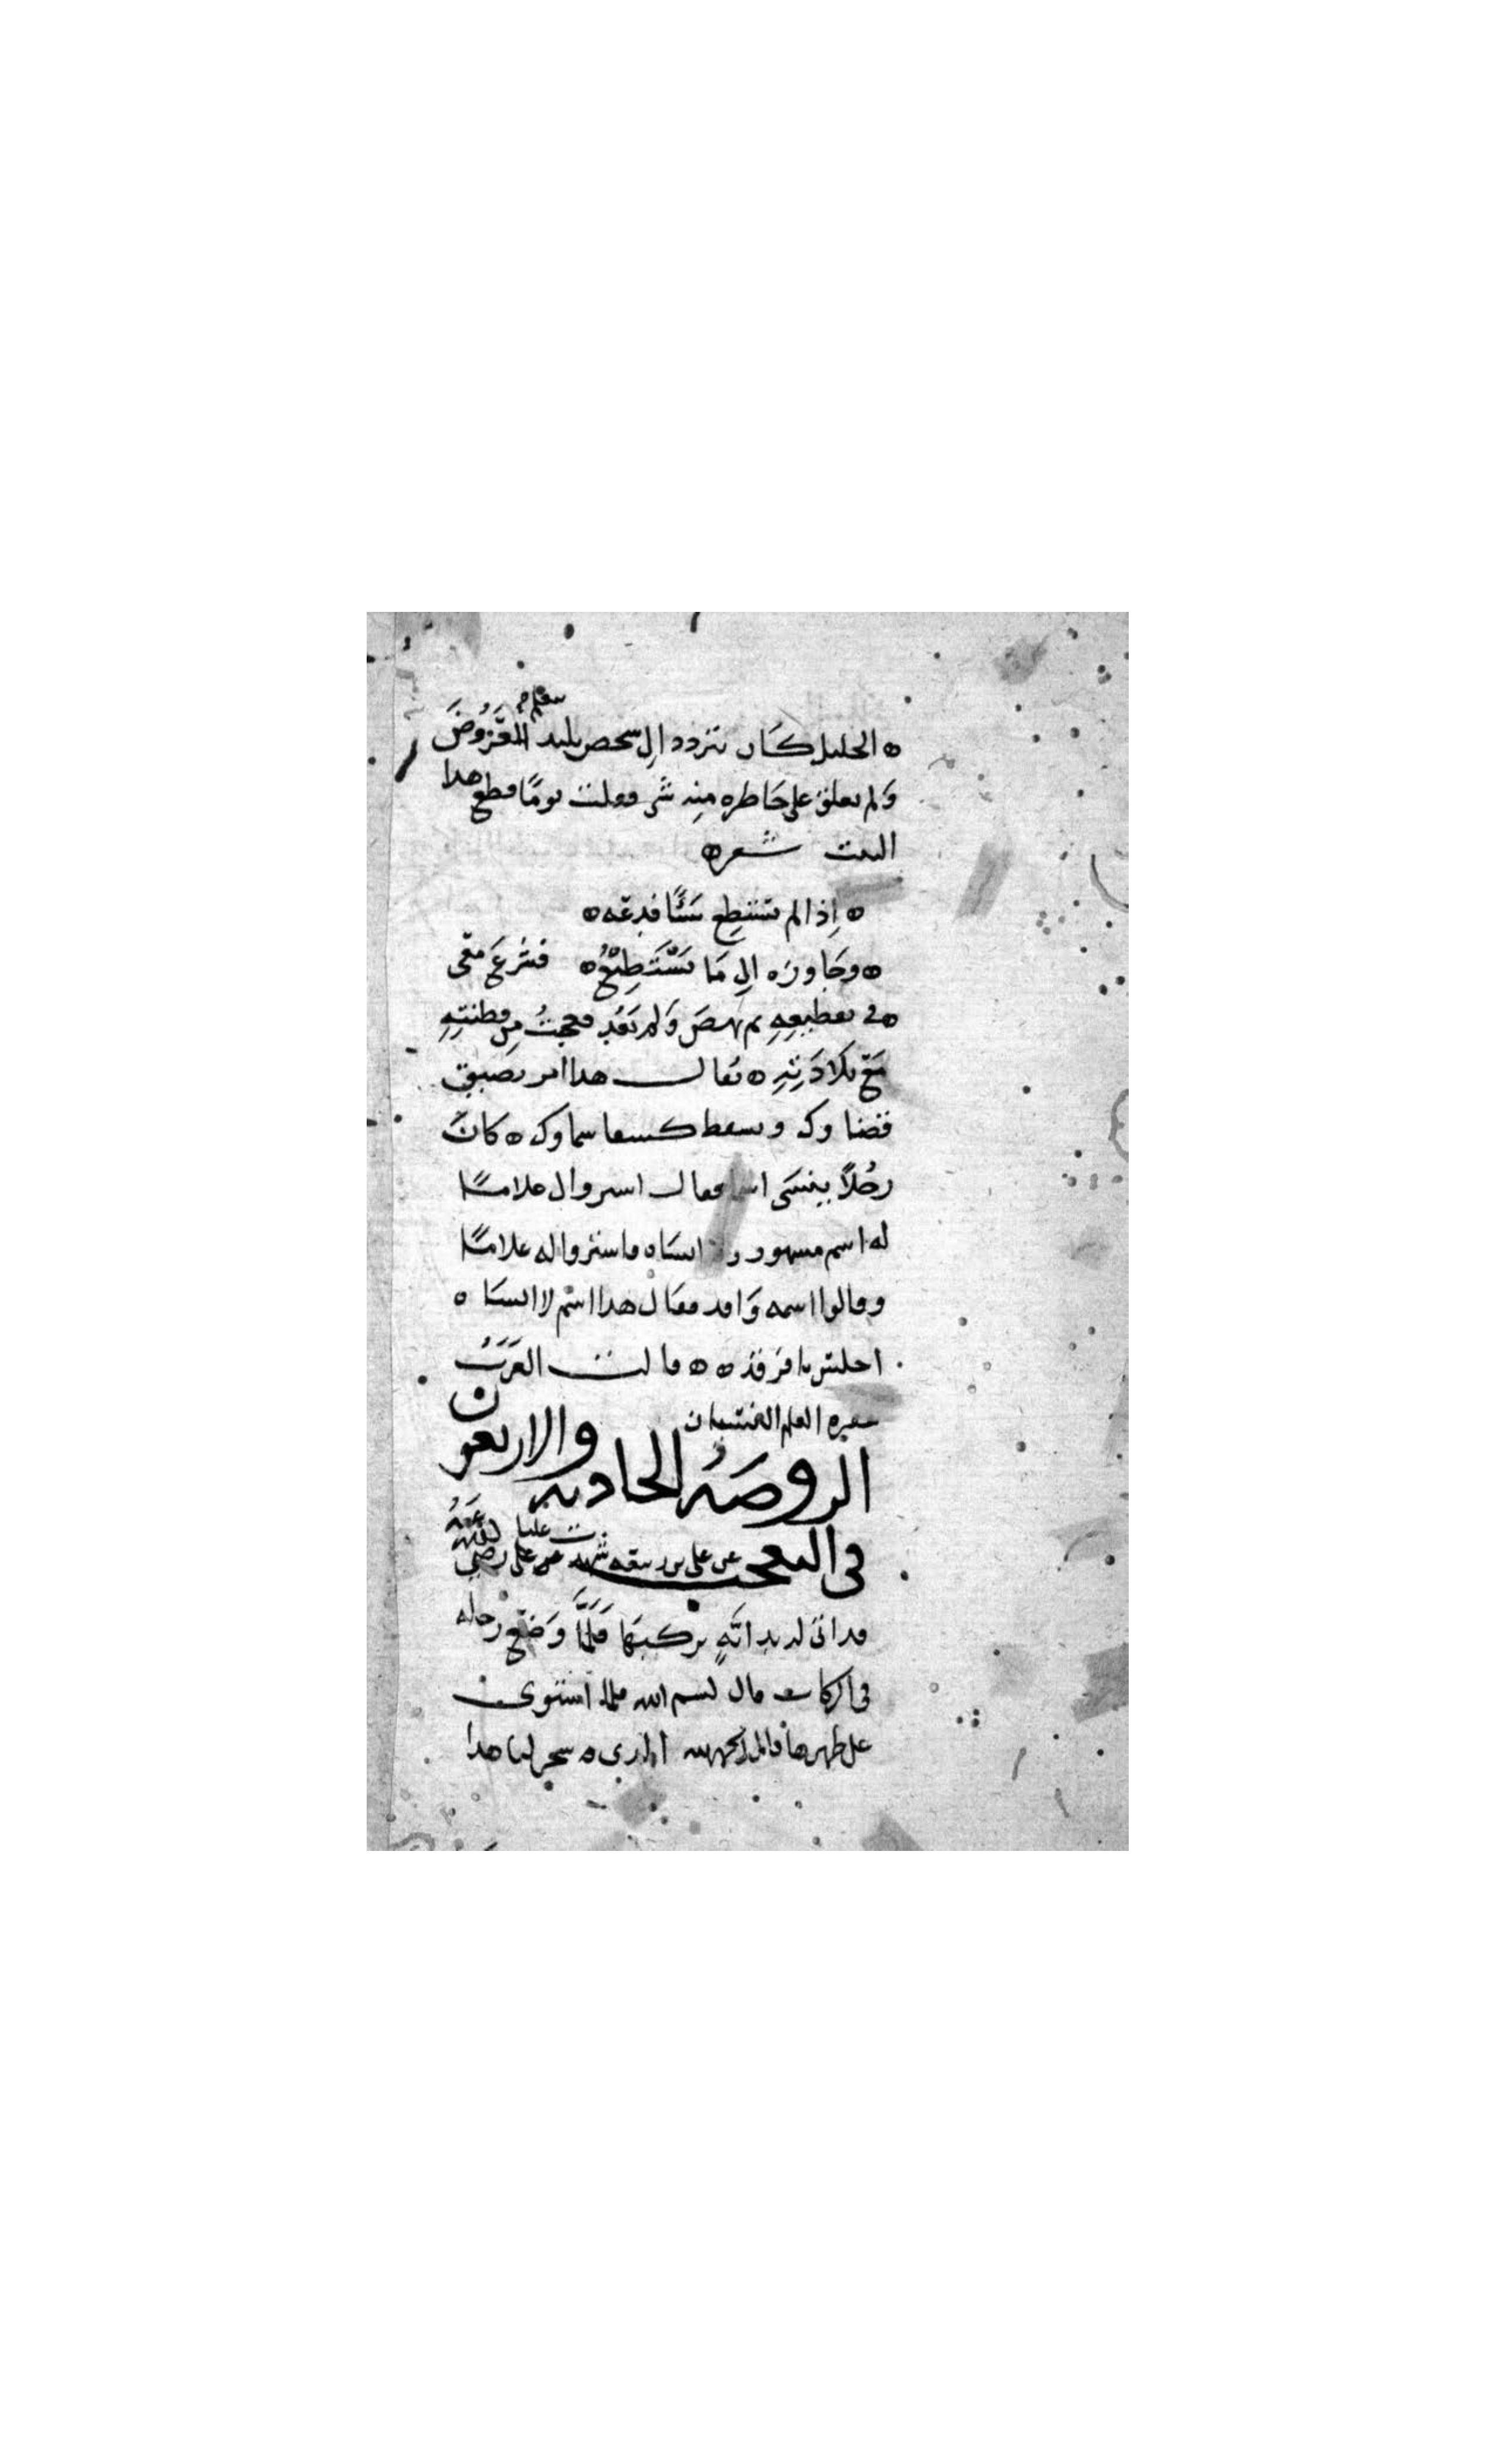 الخليل كان يتردد الى شخص بليد ليتعلم العروض
ولم يعلق على خاطره منه شي فقلت يوما قطع هذا
البيت شعر
اذا لم تستطع شيئا فدعه
وجاوزه الى ما تستطيع فشرع معى
في تقطيعه ثم نهض ولم يعد فعجبت من فطنته
مع بلادته يقال هذا امر يضيق
فضاوك ويسقط سماوك كان
رجلا ينسى فقال اشتروا لى غلاما
له اسم مشهور لا انساه فاشتروا له غلاما
وقالوا اسمه واقد فقال هذا اسم لا انساه
اجلس يا فرقد قالت العرب
العلم النسيان
الروضة الحادية والاربعون
في التعجب عن على بن ربيعة شهدت عليا رضي الله عنه
قد اتى له بدابة يركبها فلما وضع رجله
في الركاب قال بسم الله فلما استوى
على ظهرها قال الحمد لله الذي سخر لنا هذا